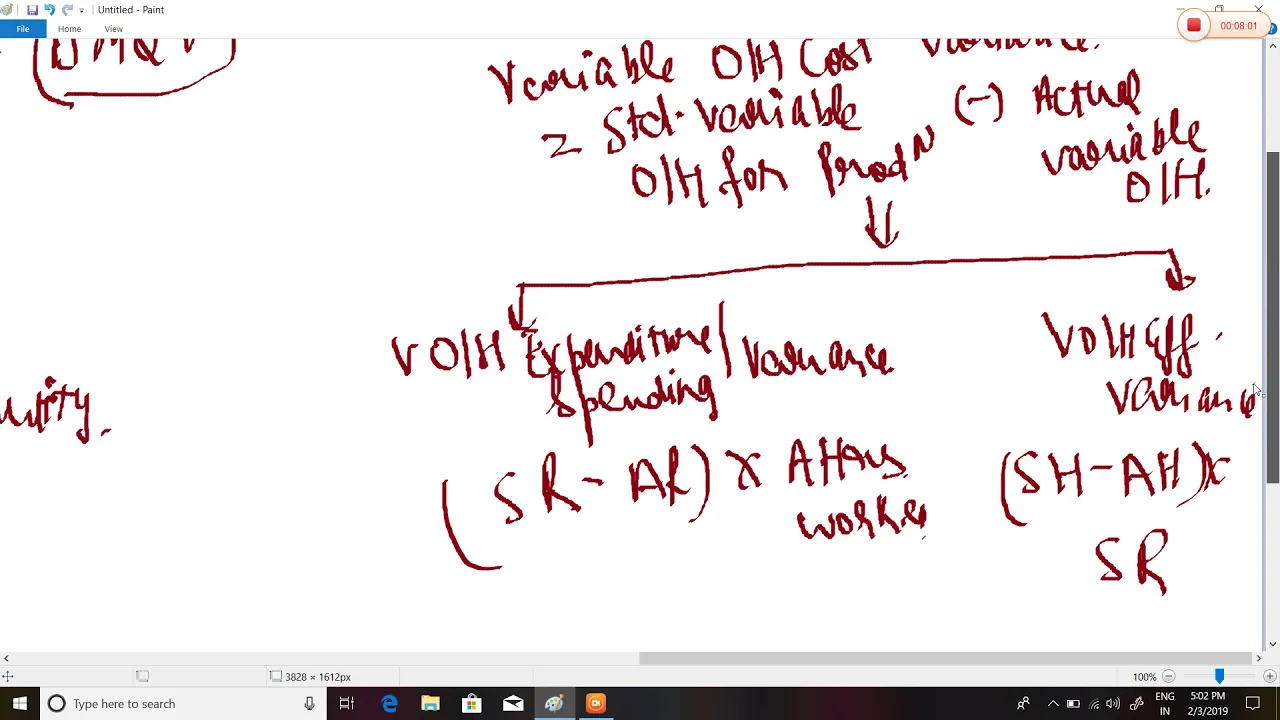 Untitled - Paint
00:08:01
File Home View
Variable O/H Cost variance.
= Std. variable (-) Actual
O/H for Prodn variable
O/H.
V O/H Expenditure/ Variance
Spending
V O/H Eff.
variance
(SR - AR) x AHrs
worked
(SH - AH) x
SR
3828 × 1612px
100%
Type here to search
ENG
IN
5:02 PM
2/3/2019